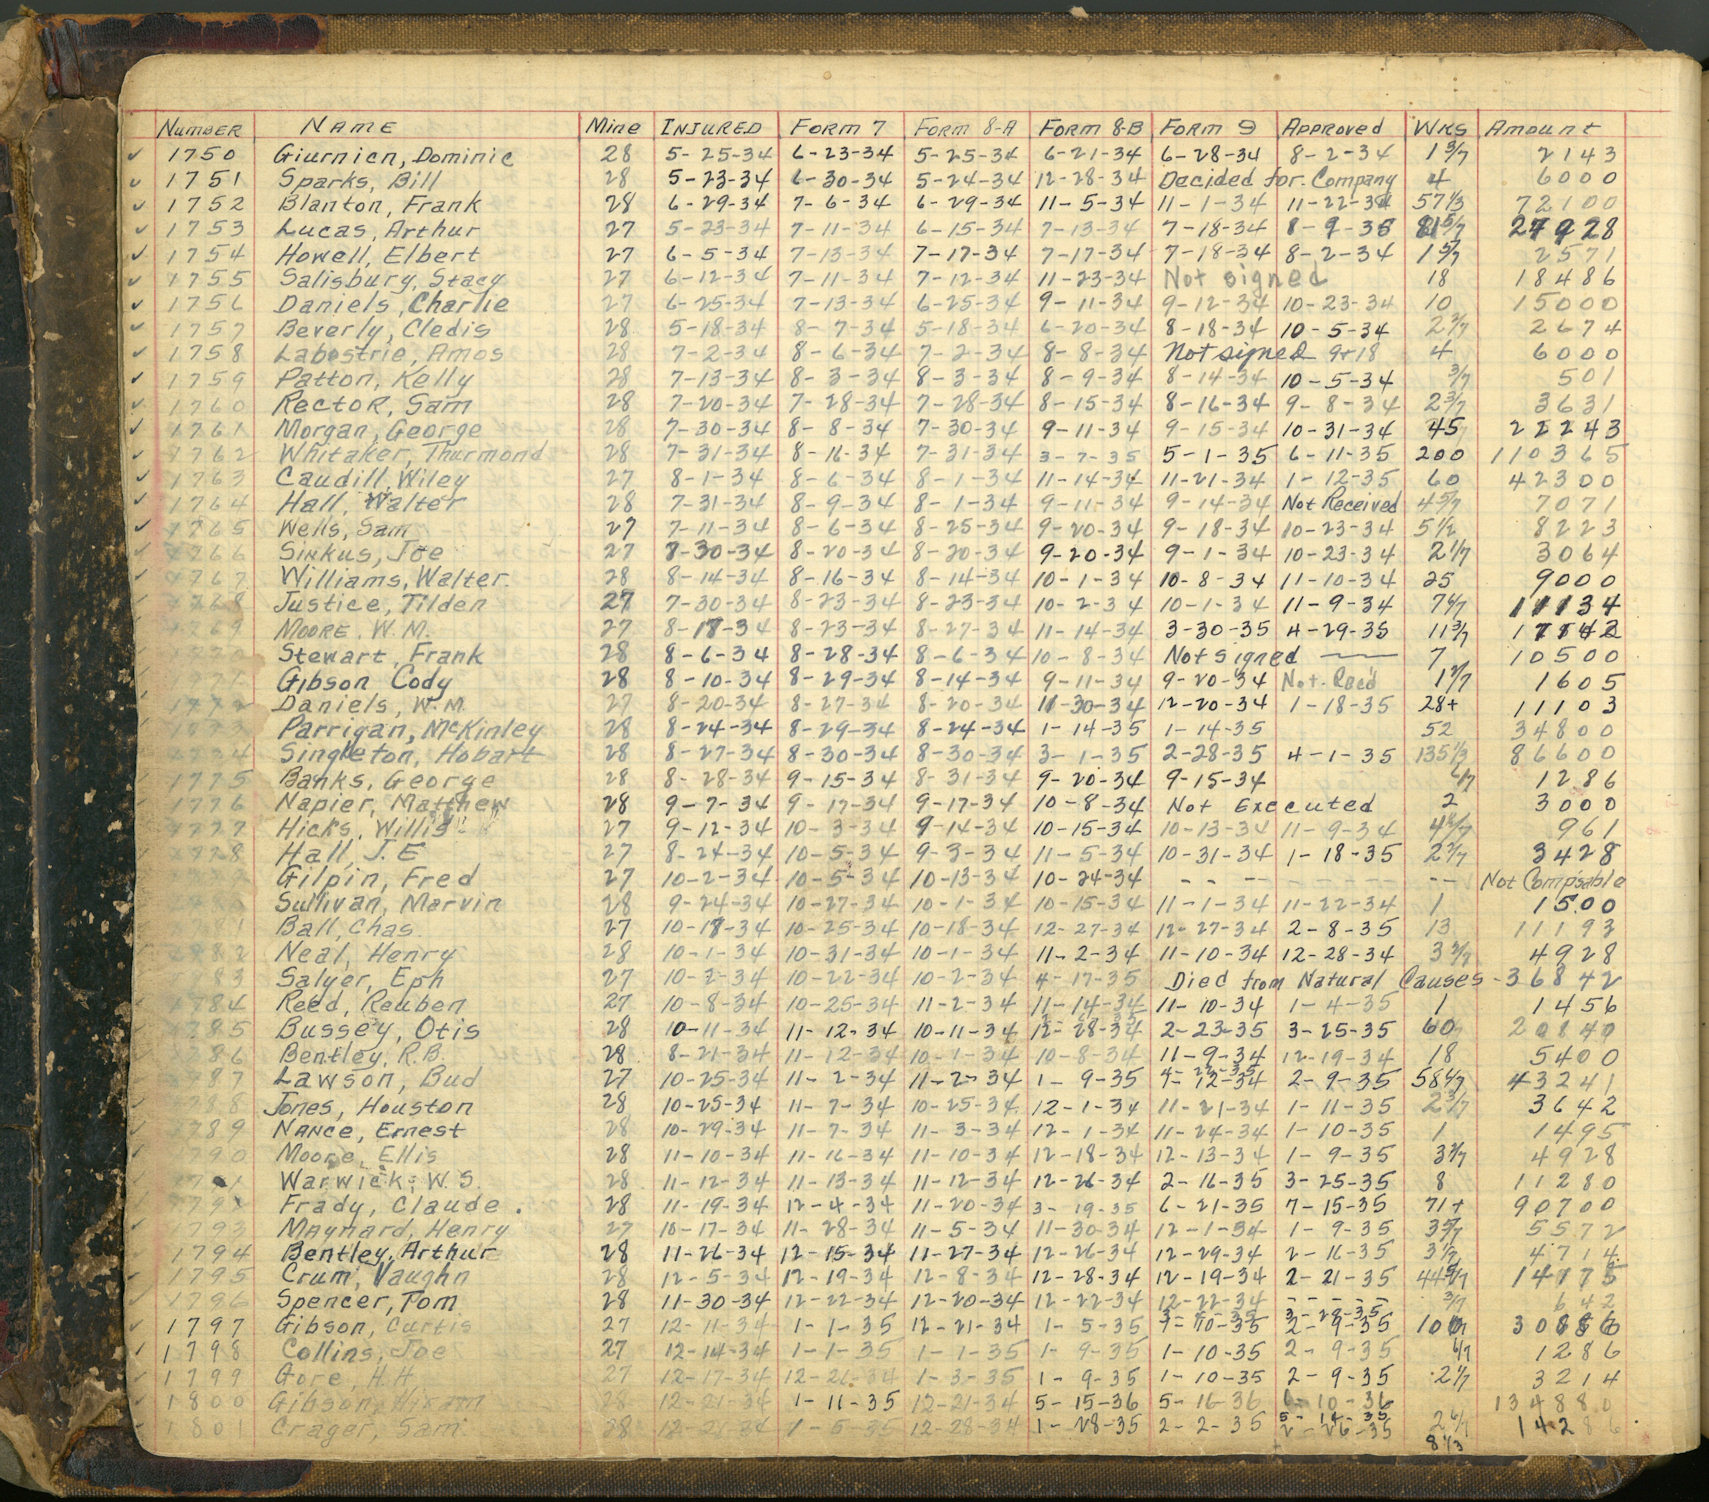 Number NAME Mine INJURED FORM 7 FORM 8-A FORM 8-B FORM 9 APPROVED WKS Amount
1750 Giurnien, Dominic 28 5-25-34 6-23-34 5-25-34 6-21-34 6-28-34 8-2-34 1 3/7 2143
1751 Sparks, Bill 28 5-23-34 6-30-34 5-24-34 12-28-34 Decided for Company 4 6000
1752 Blanton, Frank 28 6-29-34 7-6-34 6-29-34 11-5-34 11-1-34 11-22-34 57 1/3 72100
1753 Lucas, Arthur 27 5-23-34 7-11-34 6-15-34 7-13-34 7-18-34 8-9-35 27928
1754 Howell, Elbert 27 6-5-34 7-13-34 7-17-34 7-17-34 7-18-34 8-2-34 1 5/7 2571
1755 Salisbury, Stacy 27 6-12-34 7-11-34 7-12-34 11-23-34 Not signed 18 18486
1756 Daniels, Charlie 27 6-25-34 7-13-34 6-25-34 9-11-34 9-12-34 10-23-34 10 15000
1757 Beverly, Cledis 28 5-18-34 8-7-34 5-18-34 6-20-34 8-18-34 10-5-34 2 2/7 2674
1758 Labestrie, Amos 28 7-2-34 8-6-34 7-2-34 8-8-34 Not signed 9-18 4 6000
1759 Patton, Kelly 28 7-13-34 8-3-34 8-3-34 8-9-34 8-14-34 10-5-34 3/7 501
1760 Rector, Sam 28 7-20-34 7-28-34 7-28-34 8-15-34 8-16-34 9-8-34 2 3/7 3631
1761 Morgan, George 28 7-30-34 8-8-34 7-30-34 9-11-34 9-15-34 10-31-34 45 22243
1762 Whitaker, Thurmond 28 7-31-34 8-16-34 7-31-34 3-7-35 5-1-35 6-11-35 200 110365
1763 Caudill, Wiley 27 8-1-34 8-6-34 8-1-34 11-14-34 11-21-34 1-12-35 60 42300
1764 Hall, Walter 28 7-31-34 8-9-34 8-1-34 9-11-34 9-14-34 Not Received 4 5/7 7071
1765 Wells, Sam 27 7-11-34 8-6-34 8-25-34 9-20-34 9-18-34 10-23-34 5 1/2 8223
1766 Sinkus, Joe 27 7-30-34 8-20-34 8-20-34 9-20-34 9-1-34 10-23-34 2 1/7 3064
1767 Williams, Walter 28 8-14-34 8-16-34 8-14-34 10-1-34 10-8-34 11-10-34 25 9000
1768 Justice, Tilden 27 7-30-34 8-23-34 8-23-34 10-2-34 10-1-34 11-9-34 7 4/7 11134
1769 Moore, W.M. 27 8-18-34 8-23-34 8-27-34 11-14-34 3-30-35 4-29-35 11 3/7
Stewart, Frank 28 8-6-34 8-28-34 8-6-34 10-8-34 Not signed 7 10500
Gibson Cody 28 8-10-34 8-29-34 8-14-34 9-11-34 9-20-34 Not Rec'd 1 2/7 1605
1772 Daniels, W.M. 27 8-20-34 8-27-34 8-20-34 11-30-34 12-20-34 1-18-35 28+ 11103
1773 Parrigan, McKinley 28 8-24-34 8-29-34 8-24-34 1-14-35 1-14-35 52 34800
1774 Singleton, Hobart 28 8-27-34 8-30-34 8-30-34 3-1-35 2-28-35 4-1-35 135 1/3 86600
1775 Banks, George 28 8-28-34 9-15-34 8-31-34 9-20-34 9-15-34 6/7 1286
1776 Napier, Matthew 28 9-7-34 9-17-34 9-17-34 10-8-34 Not Executed 2 3000
1777 Hicks, Willis 27 9-12-34 10-3-34 9-14-34 10-15-34 10-13-34 11-9-34 961
1778 Hall, J.E 27 8-24-34 10-5-34 9-3-34 11-5-34 10-31-34 1-18-35 2 2/7 3428
Gilpin, Fred 27 10-2-34 10-5-34 10-13-34 10-24-34 - - - - - - - - - - Not Compsable
Sullivan, Marvin 28 9-24-34 10-27-34 10-1-34 10-15-34 11-1-34 11-22-34 1 1500
Ball, Chas. 27 10-18-34 10-25-34 10-18-34 12-27-34 12-27-34 2-8-35 13 11193
1782 Neal, Henry 28 10-1-34 10-31-34 10-1-34 11-2-34 11-10-34 12-28-34 3 2/7 4928
83 Salyer, Eph 27 10-2-34 10-22-34 10-2-34 4-17-35 Died from Natural Causes - 36842
1784 Reed, Reuben 27 10-8-34 10-25-34 11-2-34 11-14-34 11-10-34 1-4-35 1 1456
1785 Bussey, Otis 28 10-11-34 11-12-34 10-11-34 12-28-34 2-23-35 3-25-35 60 20840
786 Bentley, R.B. 28 8-21-34 11-12-34 10-1-34 10-8-34 11-9-34 12-19-34 18 5400
787 Lawson, Bud 27 10-25-34 11-2-34 11-2-34 1-9-35 12-34 2-9-35 58 4/7 43241
788 Jones, Houston 28 10-25-34 11-7-34 10-25-34 12-1-34 11-21-34 1-11-35 2 3/7 3642
1789 Nance, Ernest 28 10-29-34 11-7-34 11-3-34 12-1-34 11-24-34 1-10-35 1 1495
1790 Moore, Ellis 28 11-10-34 11-16-34 11-10-34 12-18-34 12-13-34 1-9-35 3 2/7 4928
Warwick, W.S. 28 11-12-34 11-13-34 11-12-34 12-26-34 2-16-35 3-25-35 8 11280
Frady, Claude. 28 11-19-34 12-4-34 11-20-34 3-19-35 6-21-35 7-15-35 71+ 90700
1793 Maynard, Henry 27 10-17-34 11-28-34 11-5-34 11-30-34 12-1-34 1-9-35 3 5/7 5572
1794 Bentley, Arthur 28 11-26-34 12-15-34 11-27-34 12-26-34 12-29-34 2-16-35 3 1/7 4714
1795 Crum, Vaughn 28 12-5-34 12-19-34 12-8-34 12-28-34 12-19-34 2-21-35 14175
1796 Spencer, Tom 28 11-30-34 12-22-34 12-20-34 12-22-34 12-22-34 - - - - - 3/7 642
1797 Gibson, Curtis 27 12-11-34 1-1-35 12-21-34 1-5-35 10-35 3-29-35 2-9-35
1798 Collins, Joe 27 12-14-34 1-1-35 1-1-35 1-9-35 1-10-35 2-9-35 6/7 1286
1799 Gore, H.H. 27 12-17-34 12-21-34 1-3-35 1-9-35 1-10-35 2-9-35 2 1/7 3214
1800 Gibson, Hiram 28 12-21-34 1-11-35 12-21-34 5-15-36 5-16-36 6-10-36 13488.0
1801 Crager, Sam 28 12-21-34 1-5-35 12-28-34 1-28-35 2-2-35 2-26-35 2 6/7 14286
8 1/3